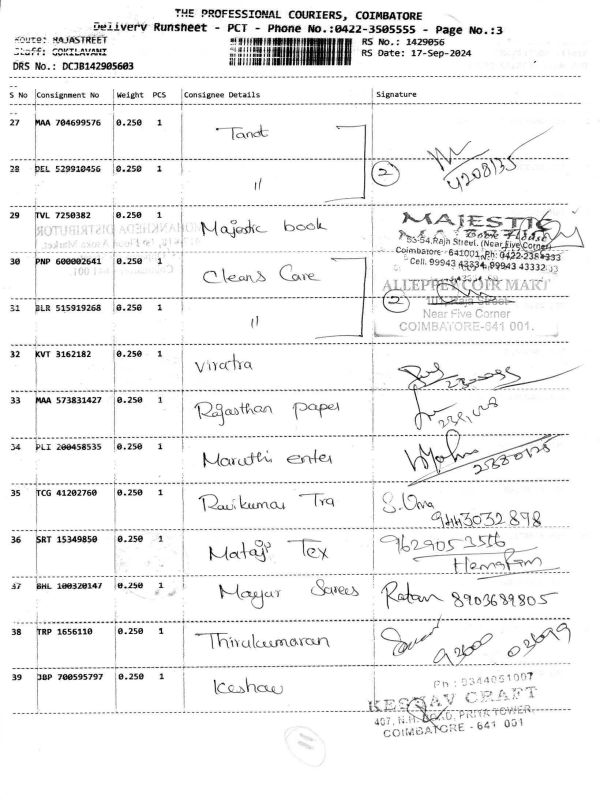 THE PROFESSIONAL COURIERS, COIMBATORE
Delivery Runsheet - PCT - Phone No.:0422-3505555 - Page No.:3
Route: RAJASTREET
RS No.: 1429056
Staff: GOKILAVANI
RS Date: 17-Sep-2024
DRS No.: DCJB142905603
S No Consignment No Weight PCS Consignee Details Signature
27 MAA 704699576 0.250 1 Tanot
4208135
28 DEL 529910456 0.250 1 " 2
29 TVL 7250382 0.250 1 Majestic book
MAJESTIC
Book House
53-54, Raja Street, (Near Five Corner)
Coimbatore - 641001, Ph: 0422-2384333
Cell: 99943 43334, 99943 43332
30 PNP 600002641 0.250 1 Cleans Care
ALLEPPEY COIR MART
Raja Street
Near Five Corner
COIMBATORE-641 001.
31 BLR 515919268 0.250 1 " 2
32 KVT 3162182 0.250 1 Viratra
33 MAA 573831427 0.250 1 Rajasthan paper
34 PLI 200458535 0.250 1 Maruthi enter
35 TCG 41202760 0.250 1 Ravikumar Tra S. Uma
9443032898
36 SRT 15349850 0.250 1 Mataji Tex 9629053556
37 BHL 100320147 0.250 1 Mayur Sarees Ratan 8903689805
38 TRP 1656110 0.250 1 Thirukumaran 92600 03699
39 JBP 700595797 0.250 1 Keshav
Ph: 9344051007
KESHAV CRAFT
407, N.H. ROAD, PRIYA TOWER,
COIMBATORE - 641 001